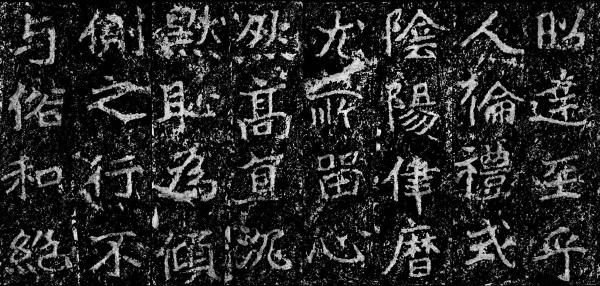 昭達至乎
人倫禮式
陰陽律曆
尤所留心
然高直沉
默恥為傾
側之行不
与俗和絕